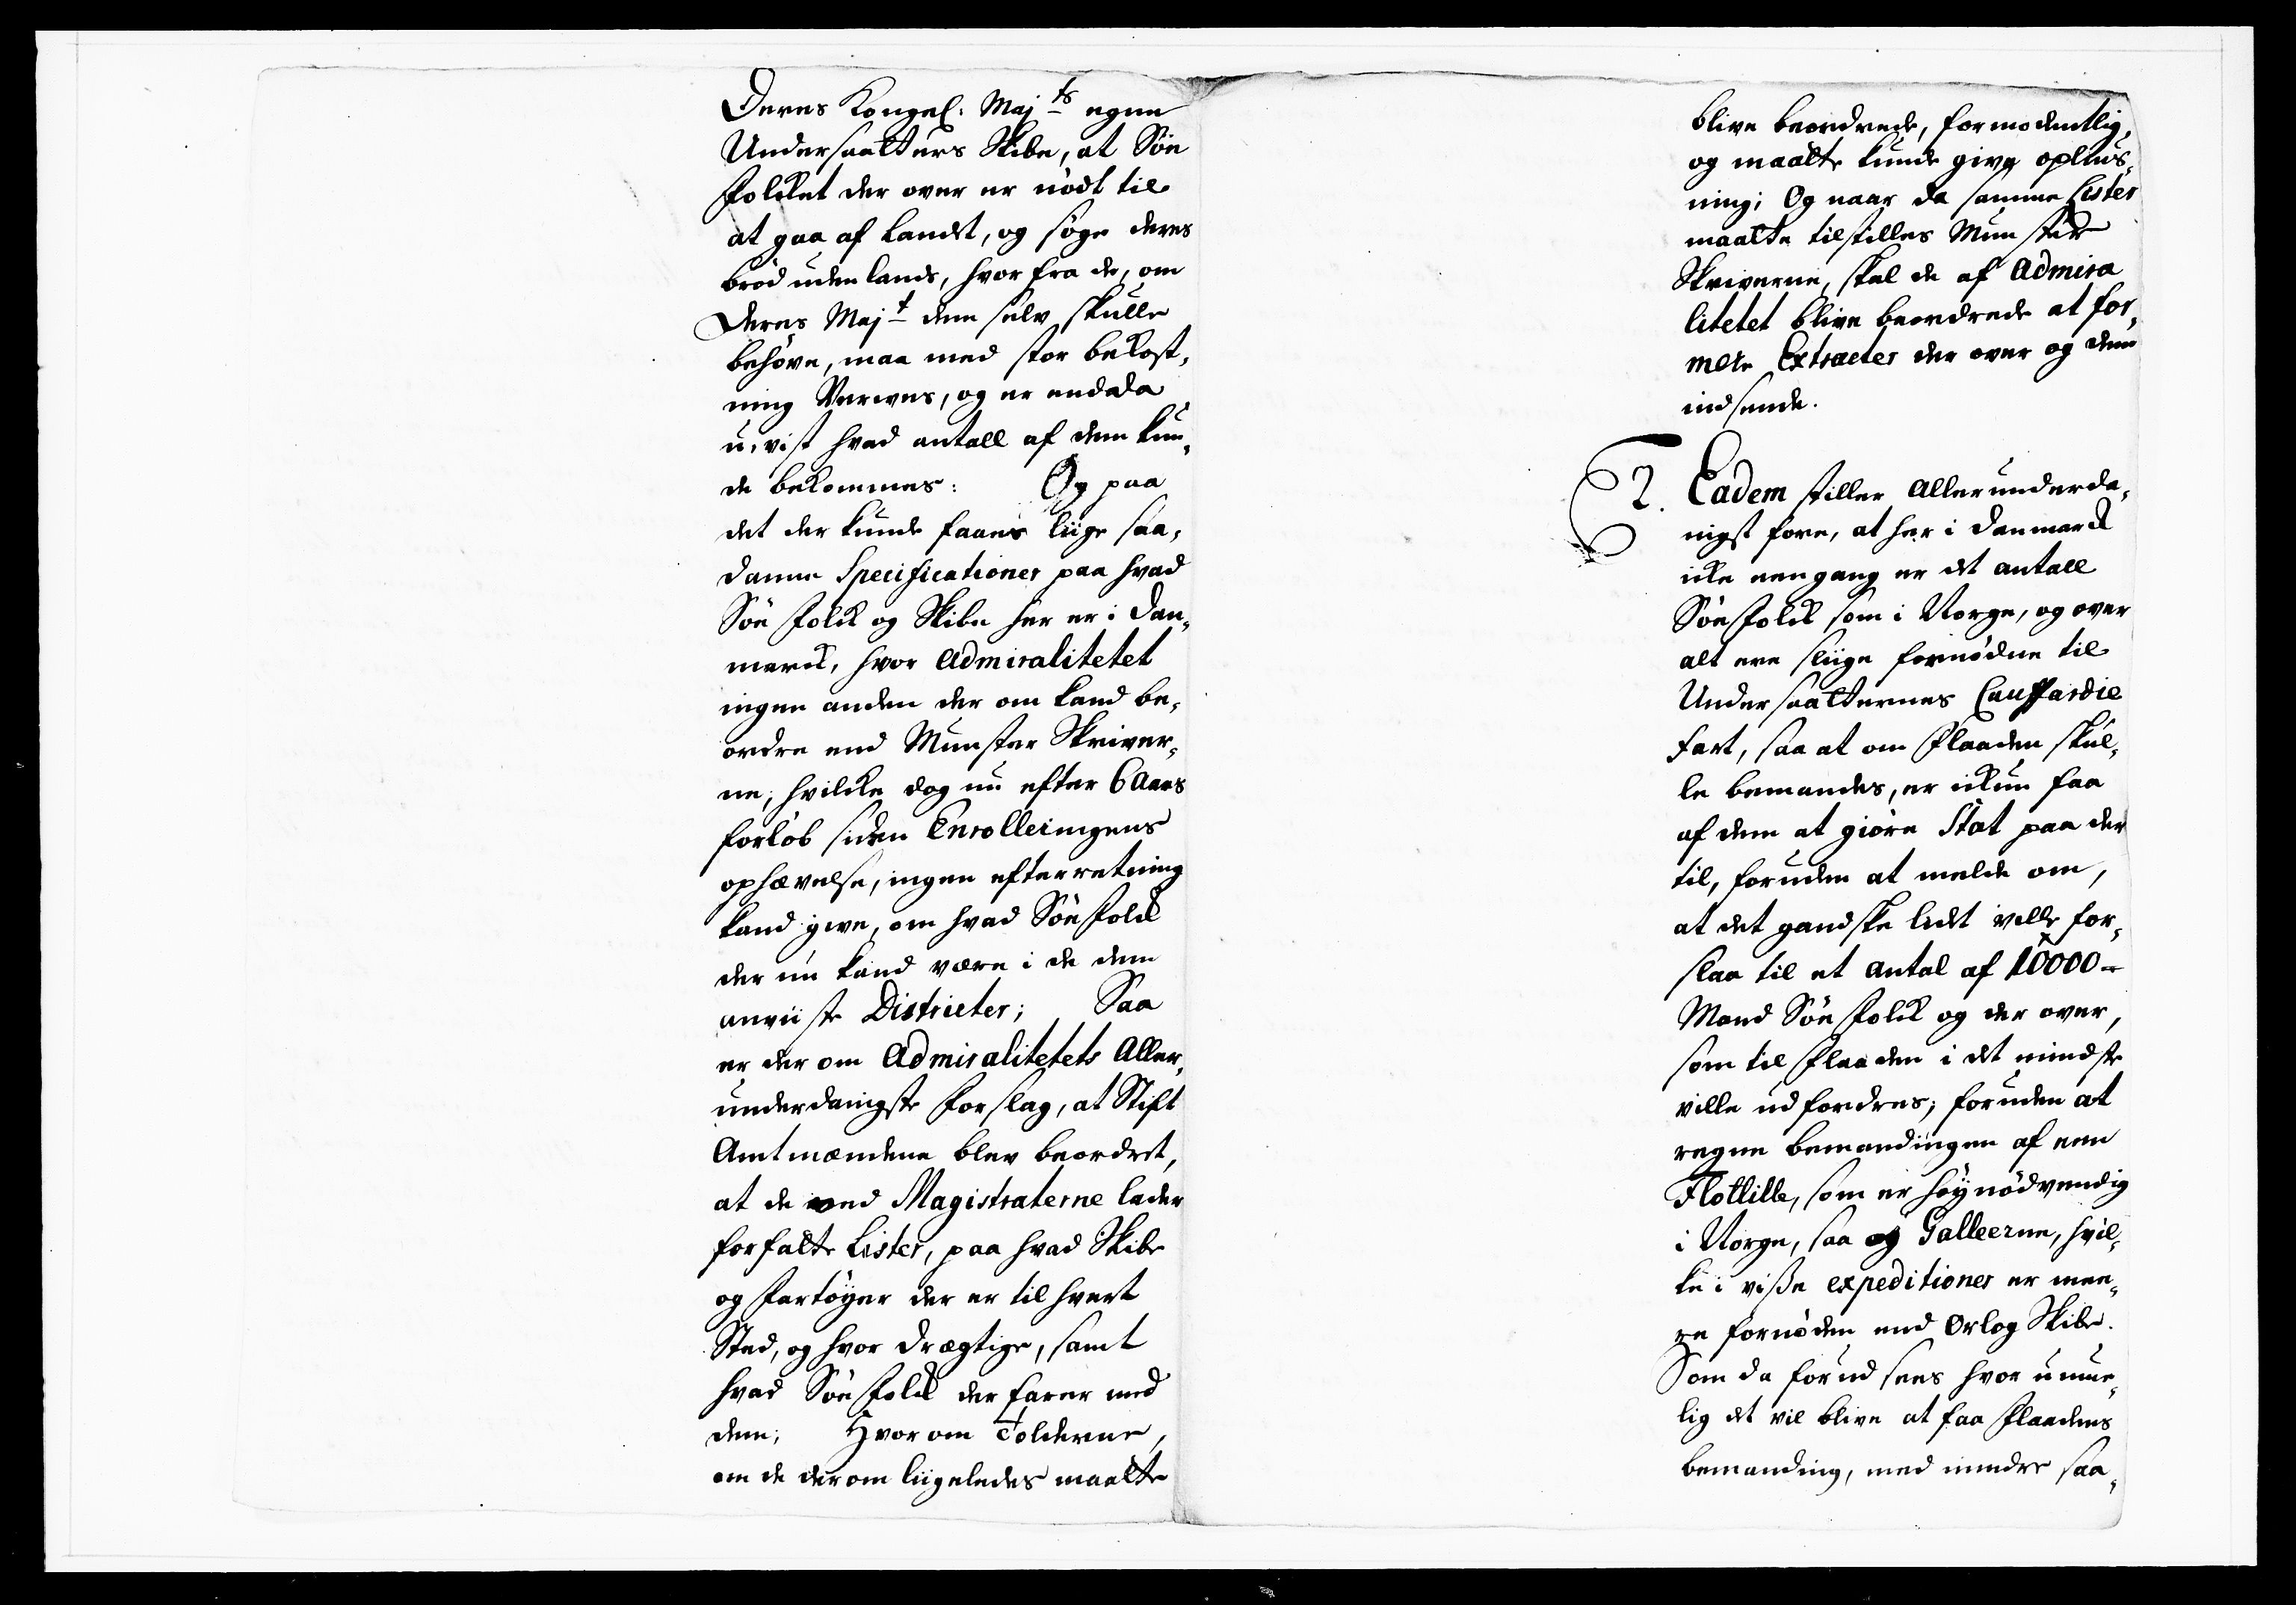 Deres Kongel: Maj<sup>ts</sup> egne
Undersaatters Skibe, at Söe
Folcket der over er nödt til
at gaa af Landet, og söge deres
bröd uden lands, hvor fra de, om
Deres Maj<sup>t</sup> dem selv skulle
behöve, maa med stor bekost,
ning Verves, og er endda
u-vist hvad antall af dem kun,
de bekommes: Og paa
det der kunde faaes liige saa,
danne Specificationer paa hvad
Söe Folck og Skibe her er i Dan,
marck, hvor Admiralitetet
ingen anden der om kand be,
ordre end Munster Skriver,
ne, hvilcke dog nu efter 6 Aars
forlöb siden Enrolleringens
ophævelse, ingen efterretning
kand give, om hvad Söe Folck
der nu kand være i de dem
anviiste Districter; Saa
er der om Admiralitetets Aller,
underdanigste Forslag, at Stift
Amtmændene blev beordret,
at de ved Magistraterne lader
forfatte Lister, paa hvad Skibe
og Fartöyer der er til hvert
Sted, og hvor drægtige, samt
hvad Söe Folck der farer med
dem; Hvor om Tolderne,
om de derom liigeledes maatte
blive beordrede, formodentlig,
og maatte kunde give oplius,
ning; Og naar da samme Lister
maatte tilstilles Munster
Skriverne, skal de af Admira
litetet blive beordrede at for,
mere Extracter der over og dem
indsende.
2. Eadem stiller Allerunderda,
nigst fore, at her i Danmarck
icke eengang er det antall
Söe Folck som i Norge, og over
alt ere sliige fornödne til
Undersaatternes Cauffardie
fart, saa at om Flaaden skul,
le bemandes, er ickun faa
af dem at giöre Stat paa der
til, foruden at melde om,
at det gandske lidet ville for,
slaa til et Antal af 10000
Mand Söe Folck og der over,
som til Flaaden i det mindste
ville udfordres; foruden at
regne bemandingen af een
Flottille, som er höynödvendig
i Norge, saa og Galleerne, hvil,
ke i visse expeditioner er mee,
re fornöden end Orlog Skibe.
Som da forud sees hvor umue,
lig det vil blive at faa Flaadens
bemanding, med mindre saa,